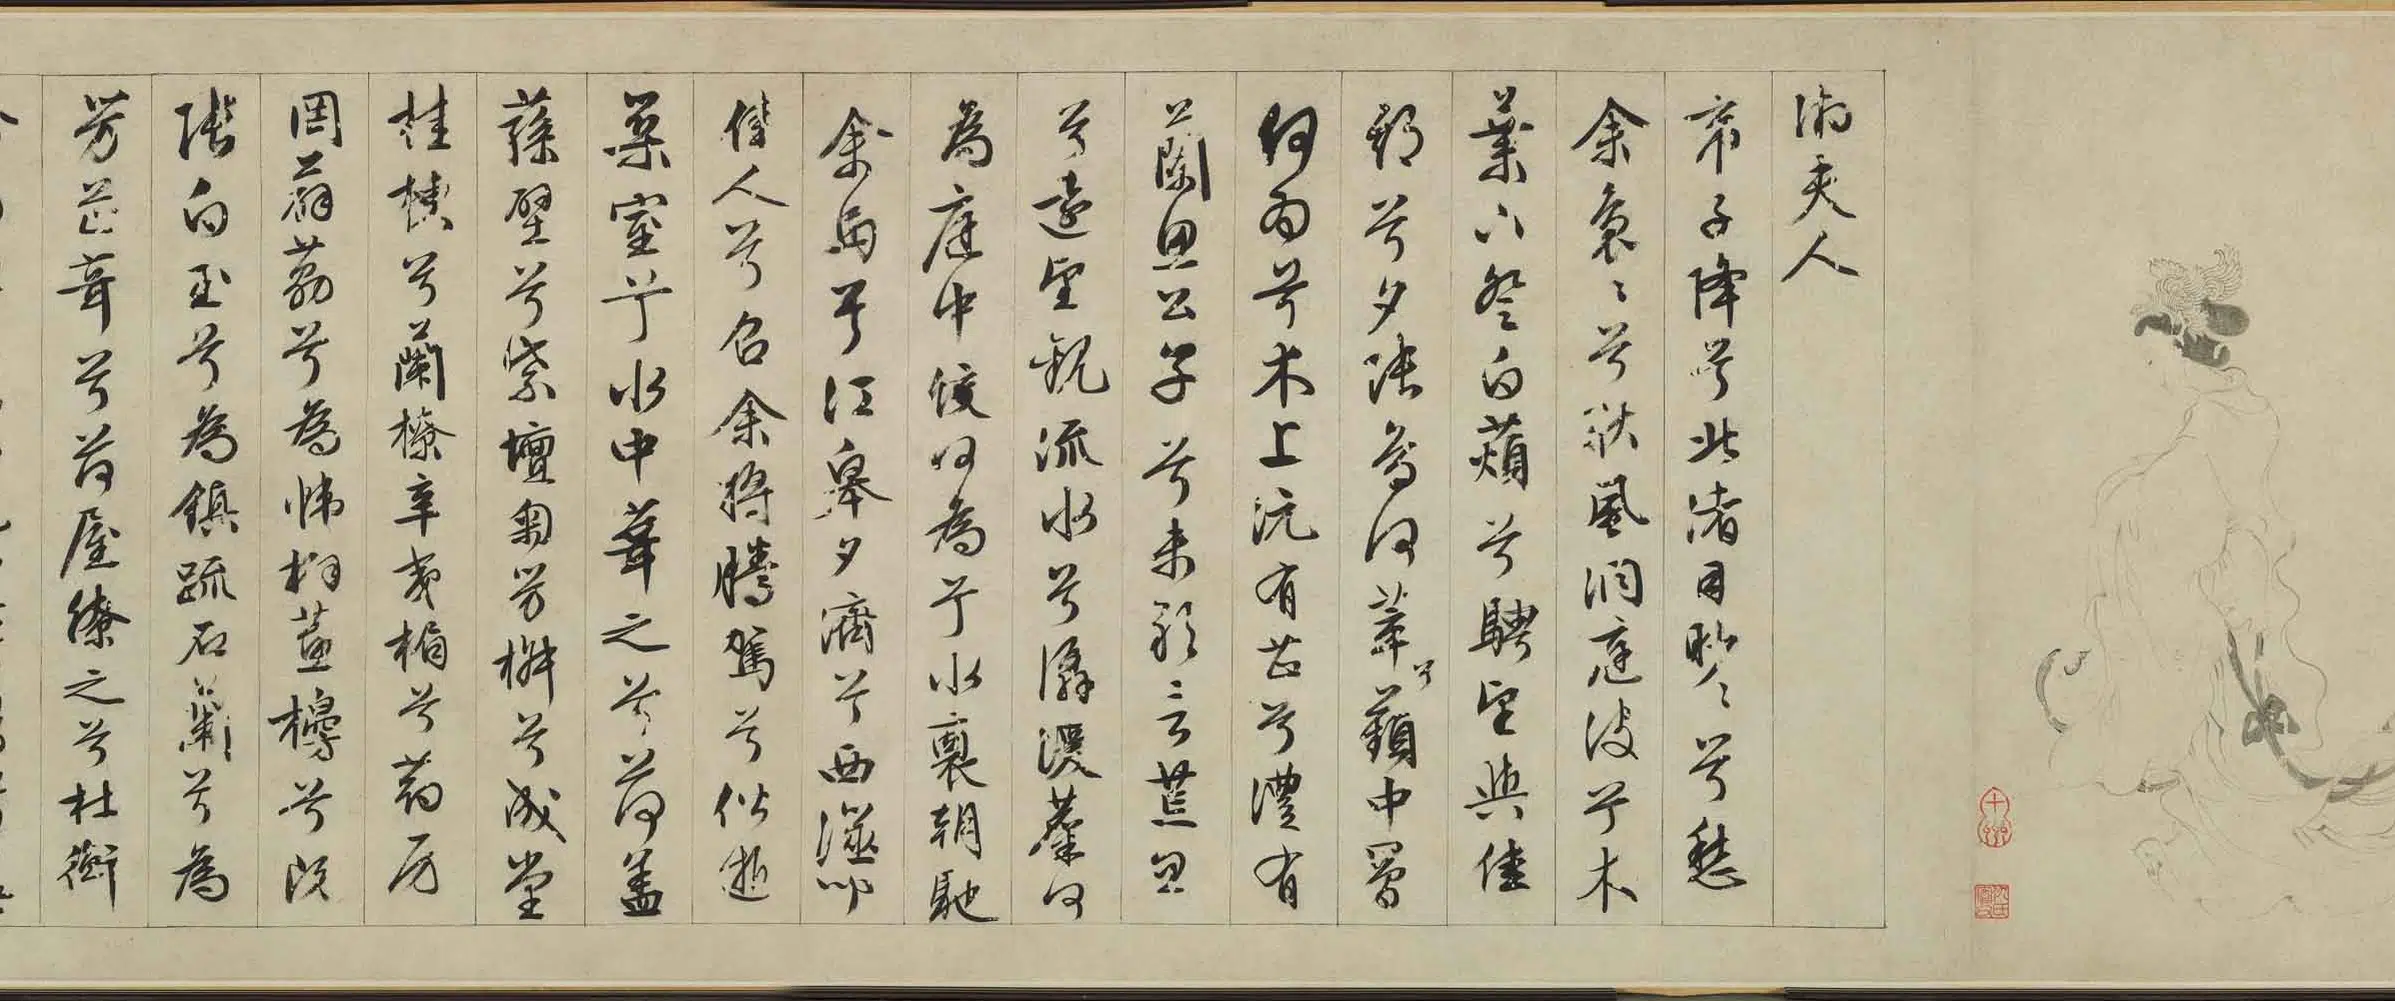 湘夫人
帝子降兮北渚目眇〻兮愁
余裊〻兮秋風洞庭波兮木
葉下登白薠兮騁望與佳
期兮夕張鳥何萃兮蘋中罾
何為兮木上沅有芷兮澧有
蘭思公子兮未敢言荒忽
兮遠望觀流水兮潺湲麋何
為庭中蛟何為兮水裔朝馳
余馬兮江皋夕濟兮西澨聞
佳人兮召余將騰駕兮偕逝
築室兮水中葺之兮荷蓋
蓀壁兮紫壇匊芳椒兮成堂
桂棟兮蘭橑辛夷楣兮葯房
罔薜荔兮為帷擗蕙櫋兮既
張白玉兮為鎮疏石蘭兮為
芳芷葺兮荷屋繚之兮杜衡
十洲